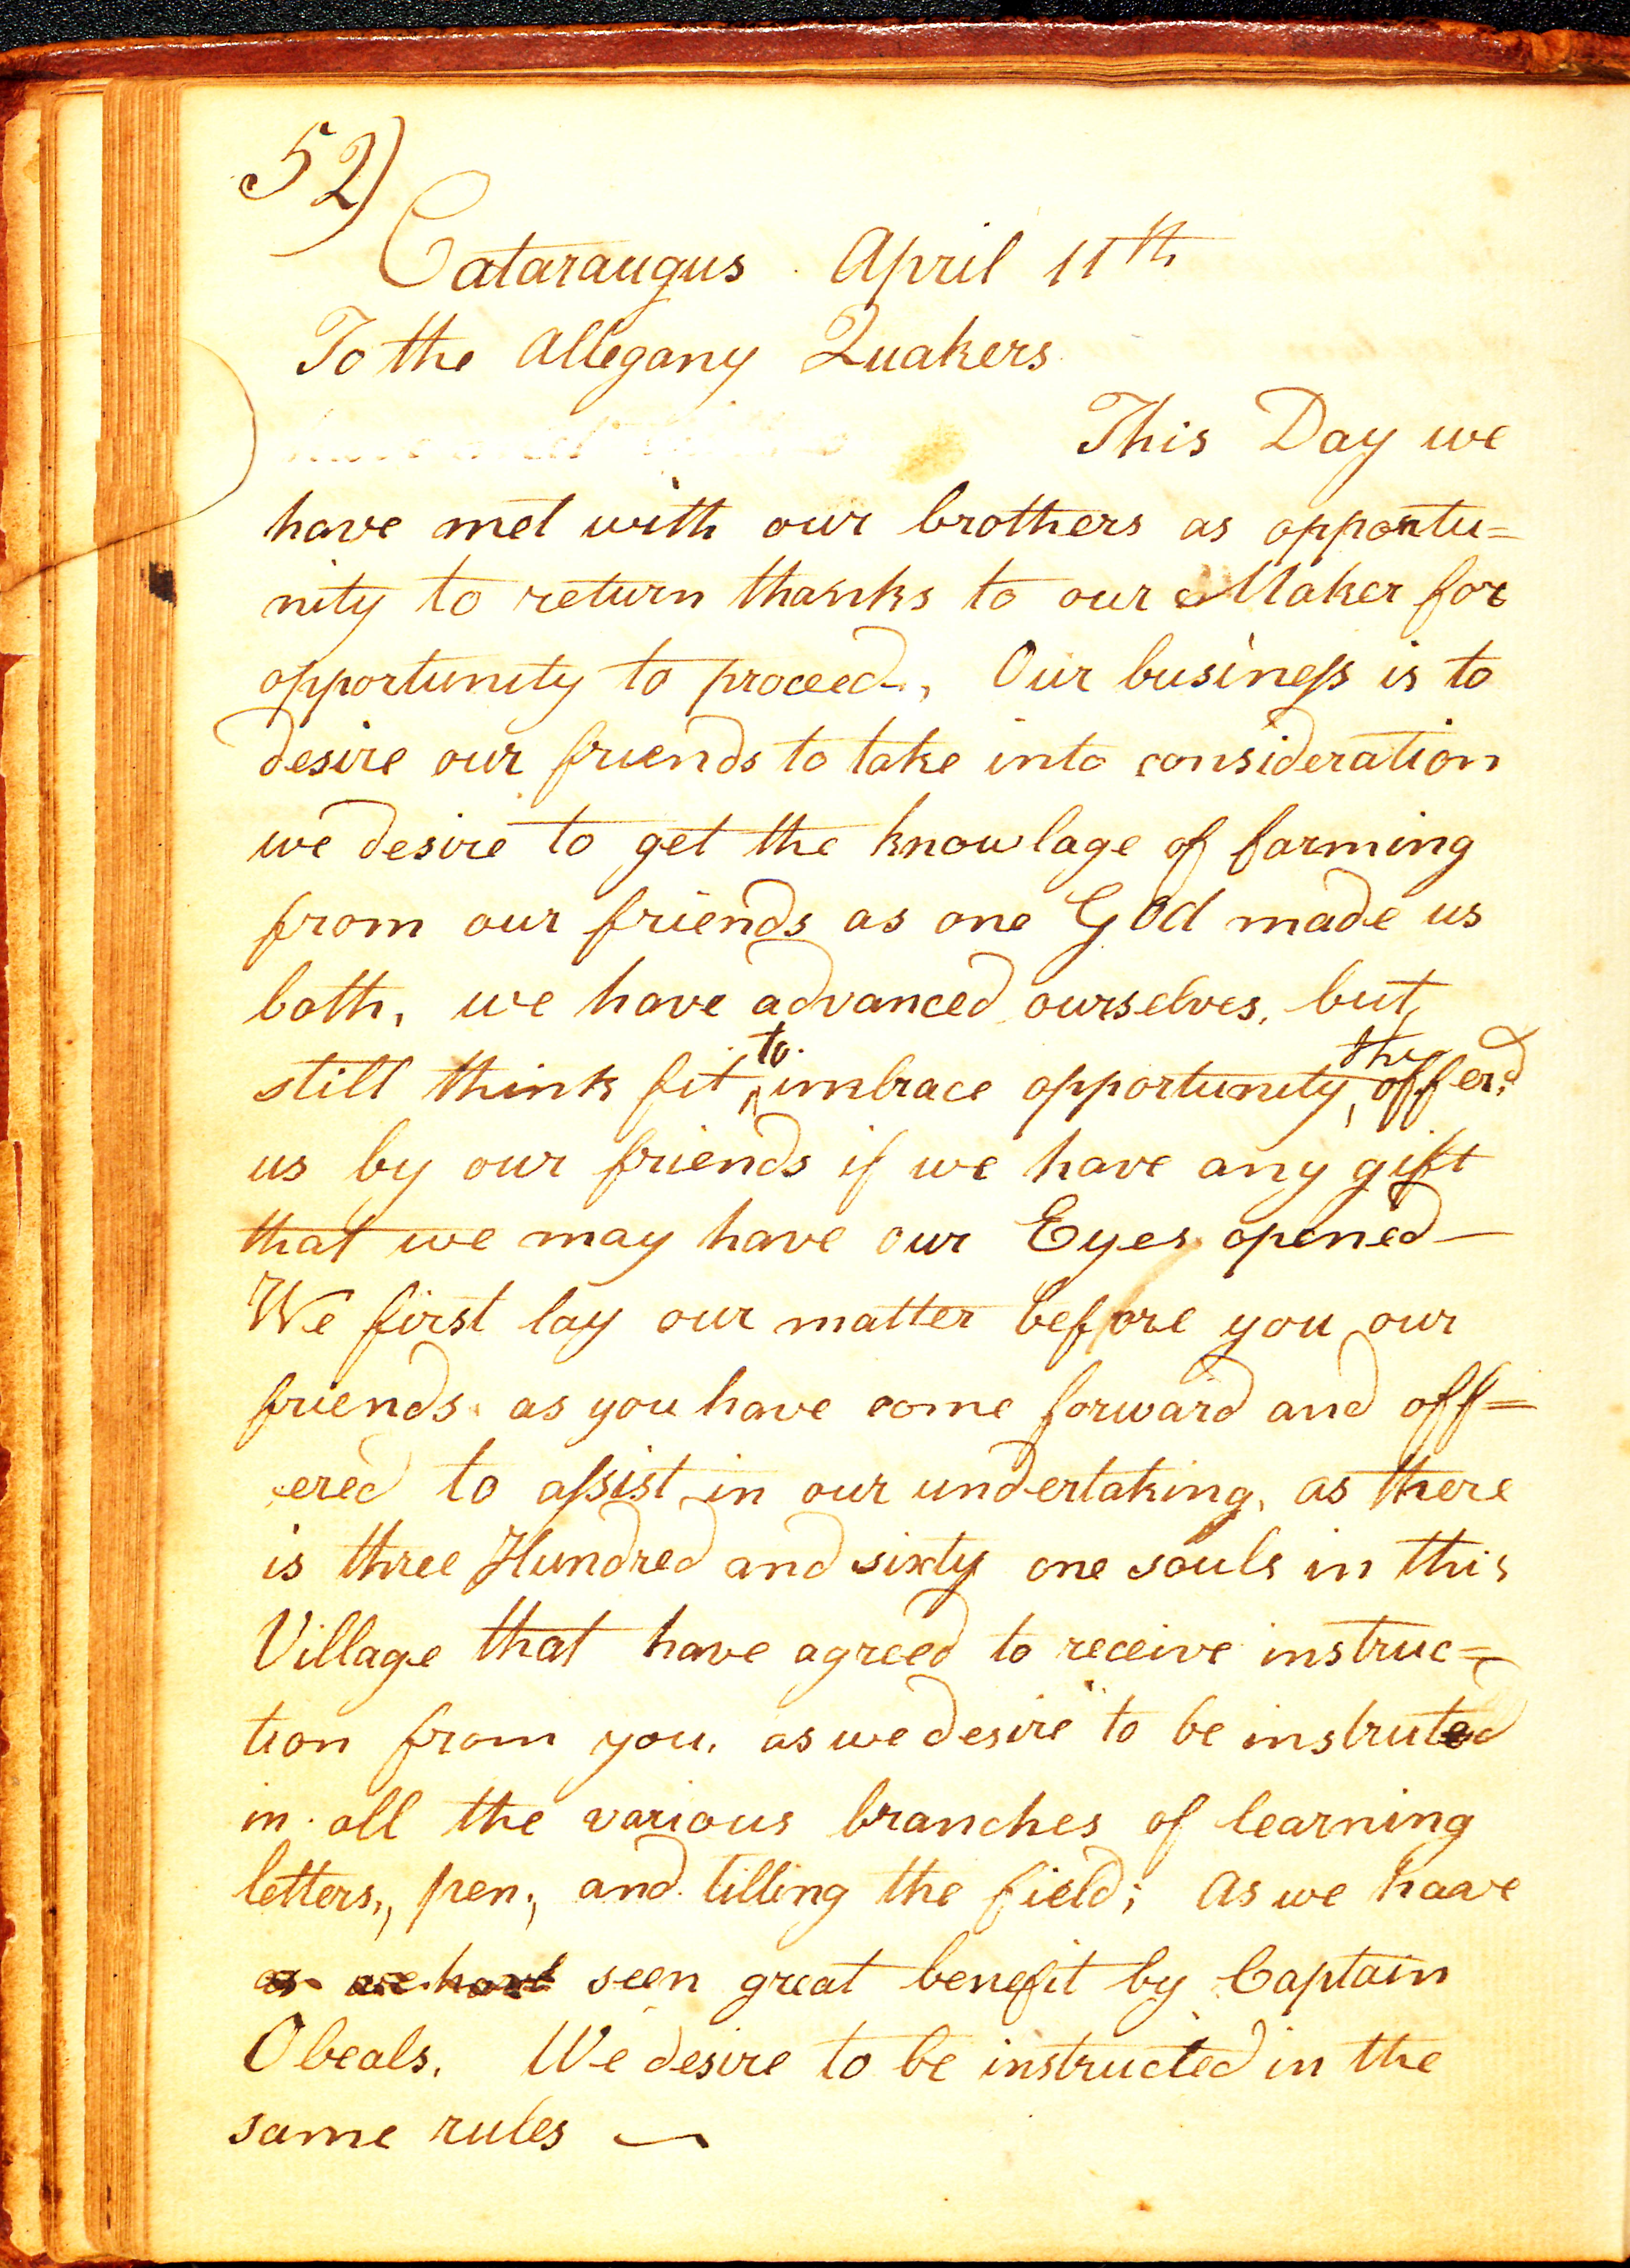 52)
Cataraugus April 11th
To the Allegany Quakers
This Day we
have met with our brothers as opportu=
nity to return thanks to our Maker for
opportunity to proceed, Our business is to
desire our friends to take into consideration
we desire to get the knowlage of farming
from our friends as one God made us
both, we have advanced ourselves, but
still think fit to imbrace opportunity the offerd
us by our friends if we have any gift
that we may have our Eyes opened —
We first lay our matter before you our
friends as you have come forward and off=
ered to assist in our undertaking, as there
is three Hundred and sixty one souls in this
Village that have agreed to receive instruc=
tion from you, as we desire to be instruted
in all the various branches of learning
letters, pen, and tilling the field; As we haave
as we have seen great benefit by Captain
Obeals. We desire to be instructed in the
same rules —